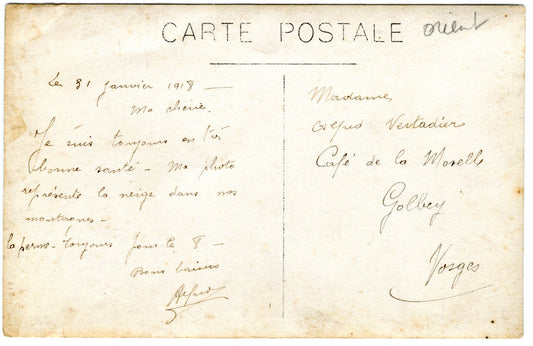 CARTE POSTALE
orient
Le 31 janvier 1918 —
Ma chérie.
Je suis toujours en très
bonne santé - Ma photo
représente la neige dans nos
montagnes -
la perme - toujours pour le 8 -
Bons baisers
Alfred
Madame
Alfred Vertadier
Café de la Moselle
Golbey
Vosges